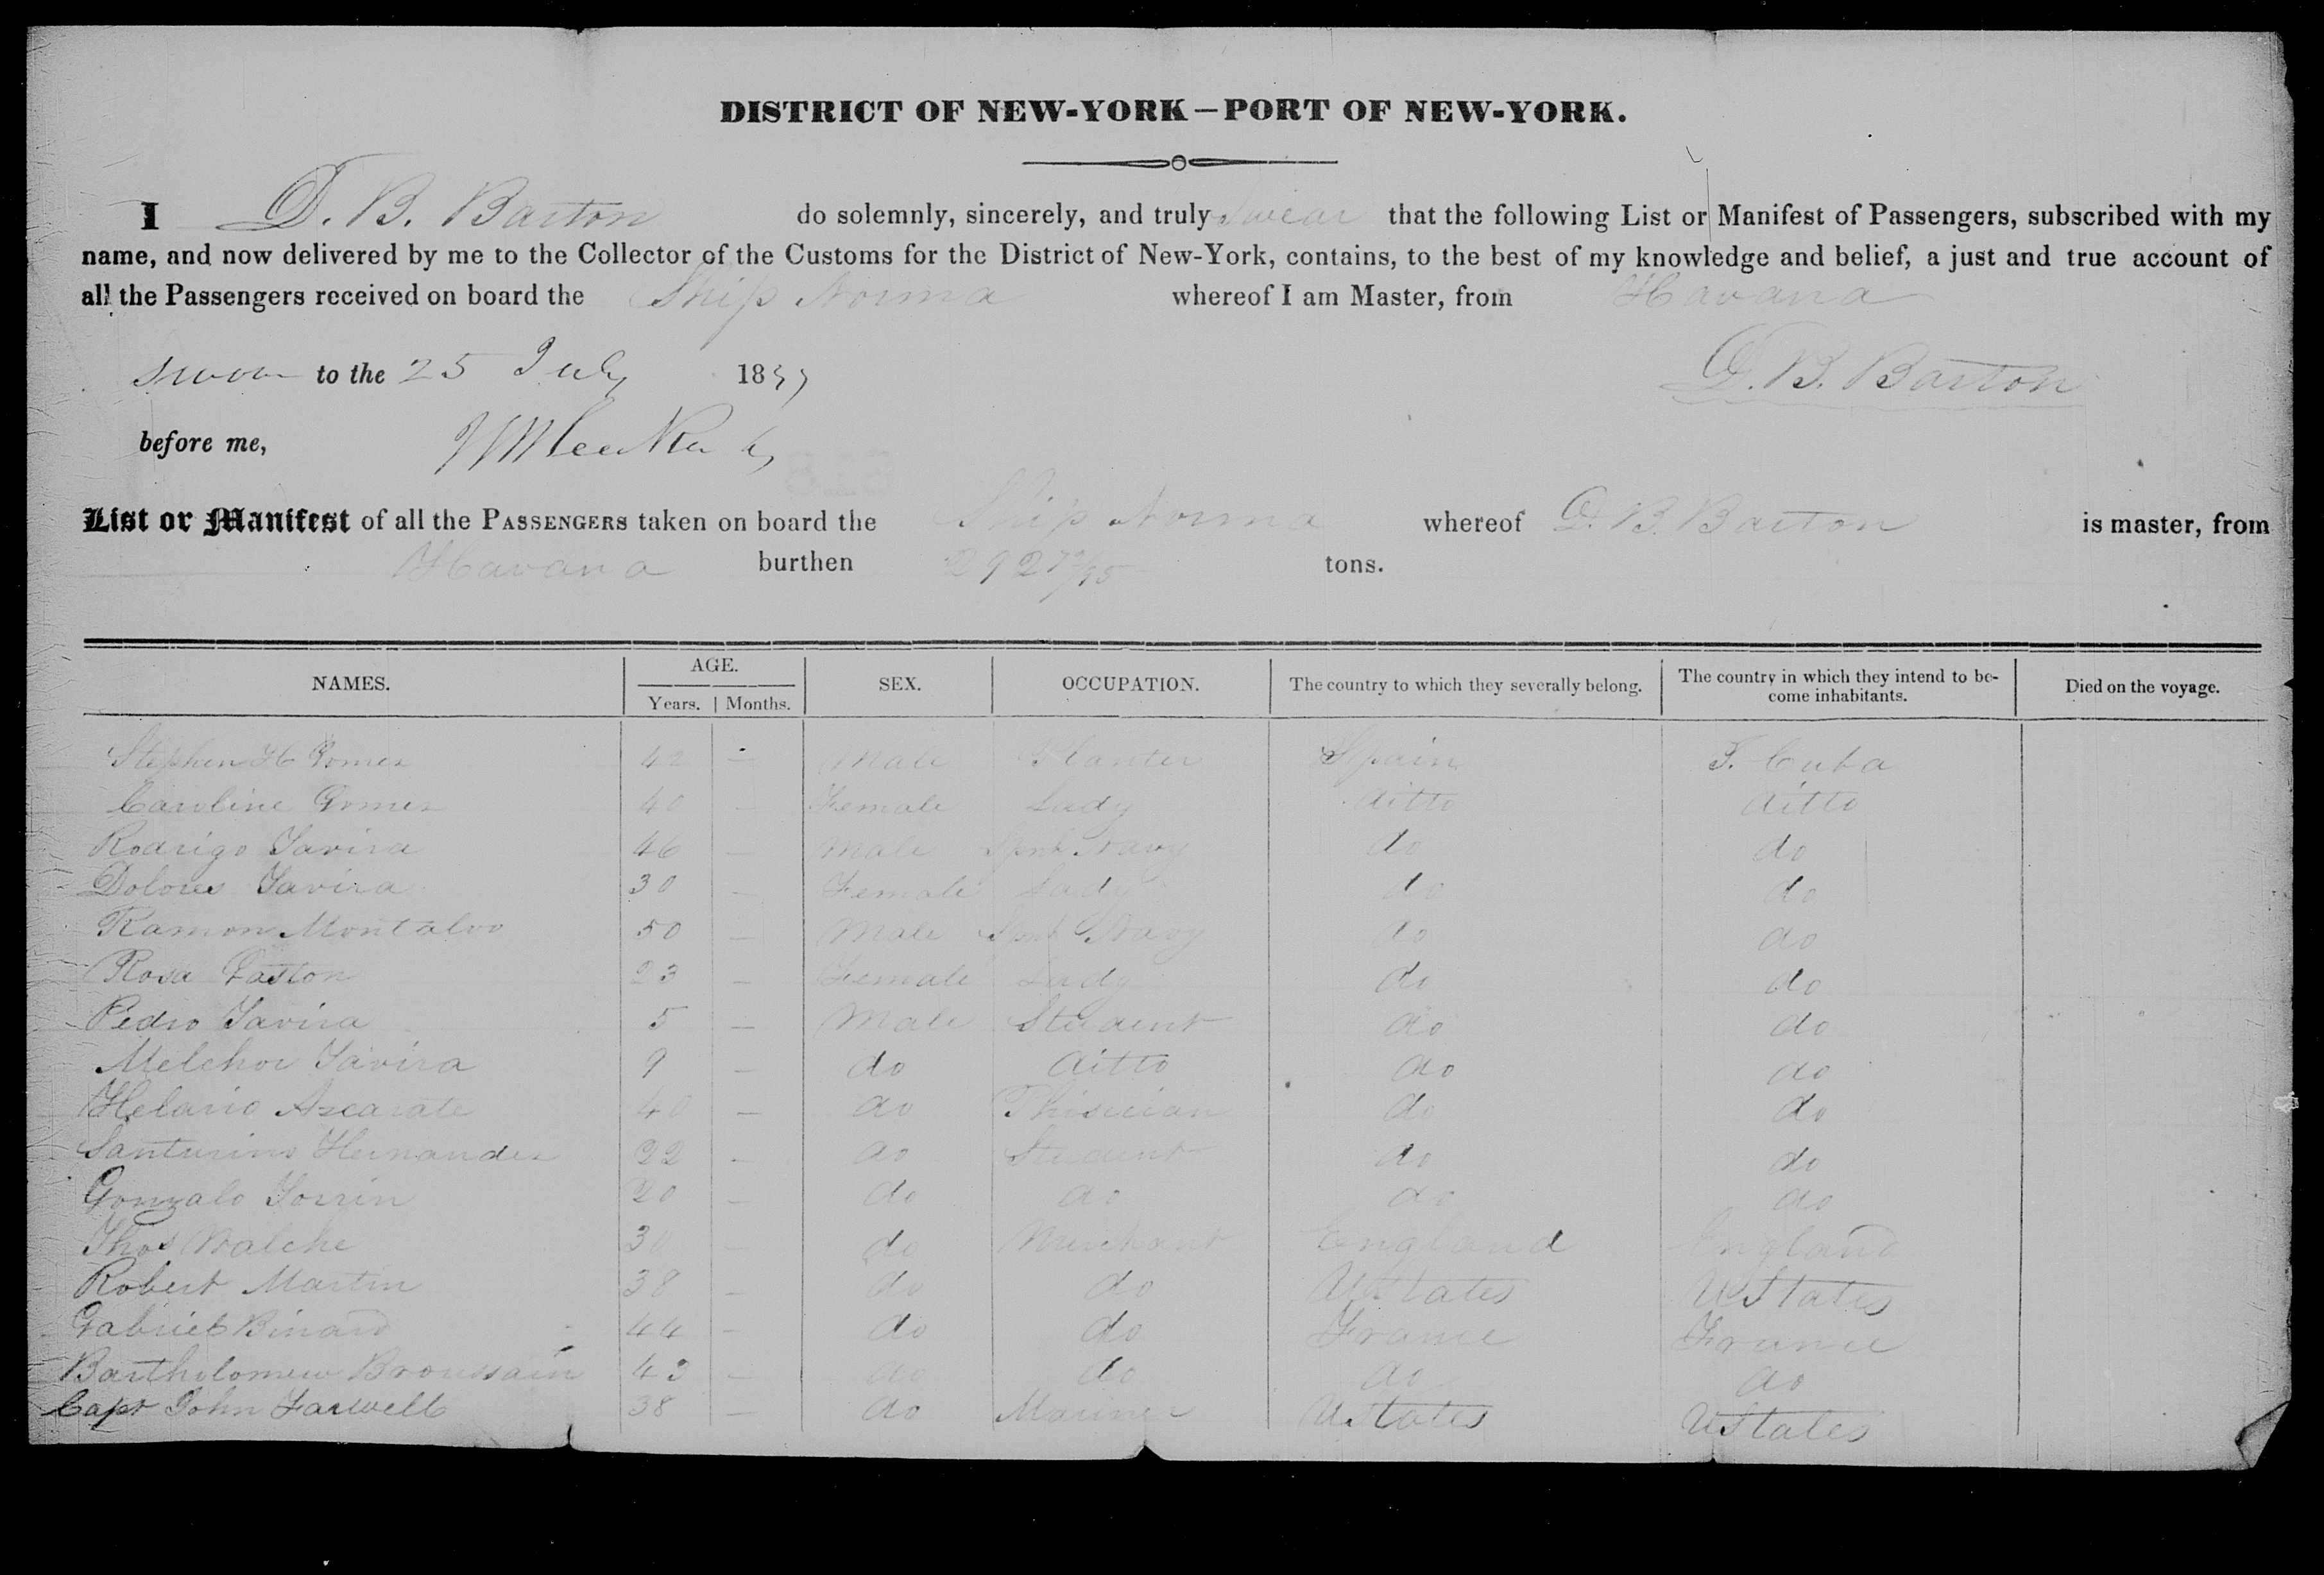 DISTRICT OF NEW-YORK — PORT OF NEW-YORK.
I D. B. Barton do solemnly, sincerely, and truly Swear that the following List or Manifest of Passengers, subscribed with my
name, and now delivered by me to the Collector of the Customs for the District of New-York, contains, to the best of my knowledge and belief, a just and true account of
all the Passengers received on board the Ship Norma whereof I am Master, from Havana
sworn to the 25 July 18
D. B. Barton
before me,
List or Manifest of all the PASSENGERS taken on board the Ship Norma whereof D. B. Barton is master, from
Havana burthen 292 /95 tons.
NAMES. AGE. Years. Months. SEX. OCCUPATION. The country to which they severally belong. The country in which they intend to become inhabitants. Died on the voyage.
Stephen H Gomez 42 — Male Planter Spain I. Cuba
Caroline Gomez 40 — Female Lady ditto ditto
Rodrigo 46 — Male Navy do do
Dolores 30 — Female Lady do do
Ramon Montalvo 50 — Male Navy do do
Rosa Gaston 23 — Female Lady do do
Pedro 5 — Male Student do do
Melchor 9 — do ditto do do
Helario Azcarate 40 — do Phisician do do
Santurino Hernandez 22 — do Student do do
Gonzalo 20 — do do do do
Thos Walche 30 — do Merchant England England
Robert Martin 38 — do do UStates UStates
Gabriel Binard 44 — do do France France
Bartholomew Broussain 43 — do do do do
Capt John Farwell 38 — do Mariner UStates UStates